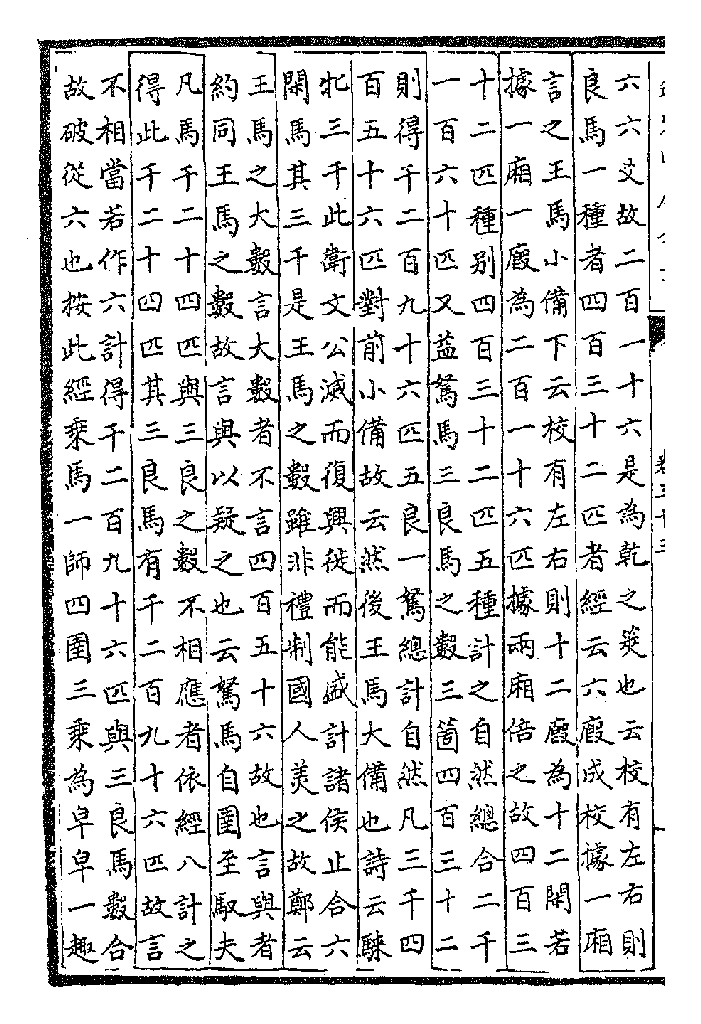 六六爻故二百一十六是為乾之筴也云校有左右則
良馬一種者四百三十二匹者經云六廄成校據一廂
言之王馬小備下云校有左右則十二廄為十二閑若
據一廂一廄為二百一十六匹據兩廂倍之故四百三
十二匹種别四百三十二匹五種計之自然總合二千
一百六十匹又益駑馬三良馬之數三箇四百三十二
則得千二百九十六匹五良一駑總計自然凡三千四
百五十六匹對前小備故云然後王馬大備也詩云騋
牝三千此衛文公滅而復興徙而能盛計諸侯止合六
閑馬其三千是王馬之數雖非禮制國人美之故鄭云
王馬之大數言大數者不言四百五十六故也言與者
約同王馬之數故言與以疑之也云駑馬自圉至馭夫
凡馬千二十四匹與三良之數不相應者依經八計之
得此千二十四匹其三良馬有千二百九十六匹故言
不相當若作六計得千二百九十六匹與三良馬數合
故破從六也按此經乘馬一師四圉三乘為皁皁一趣